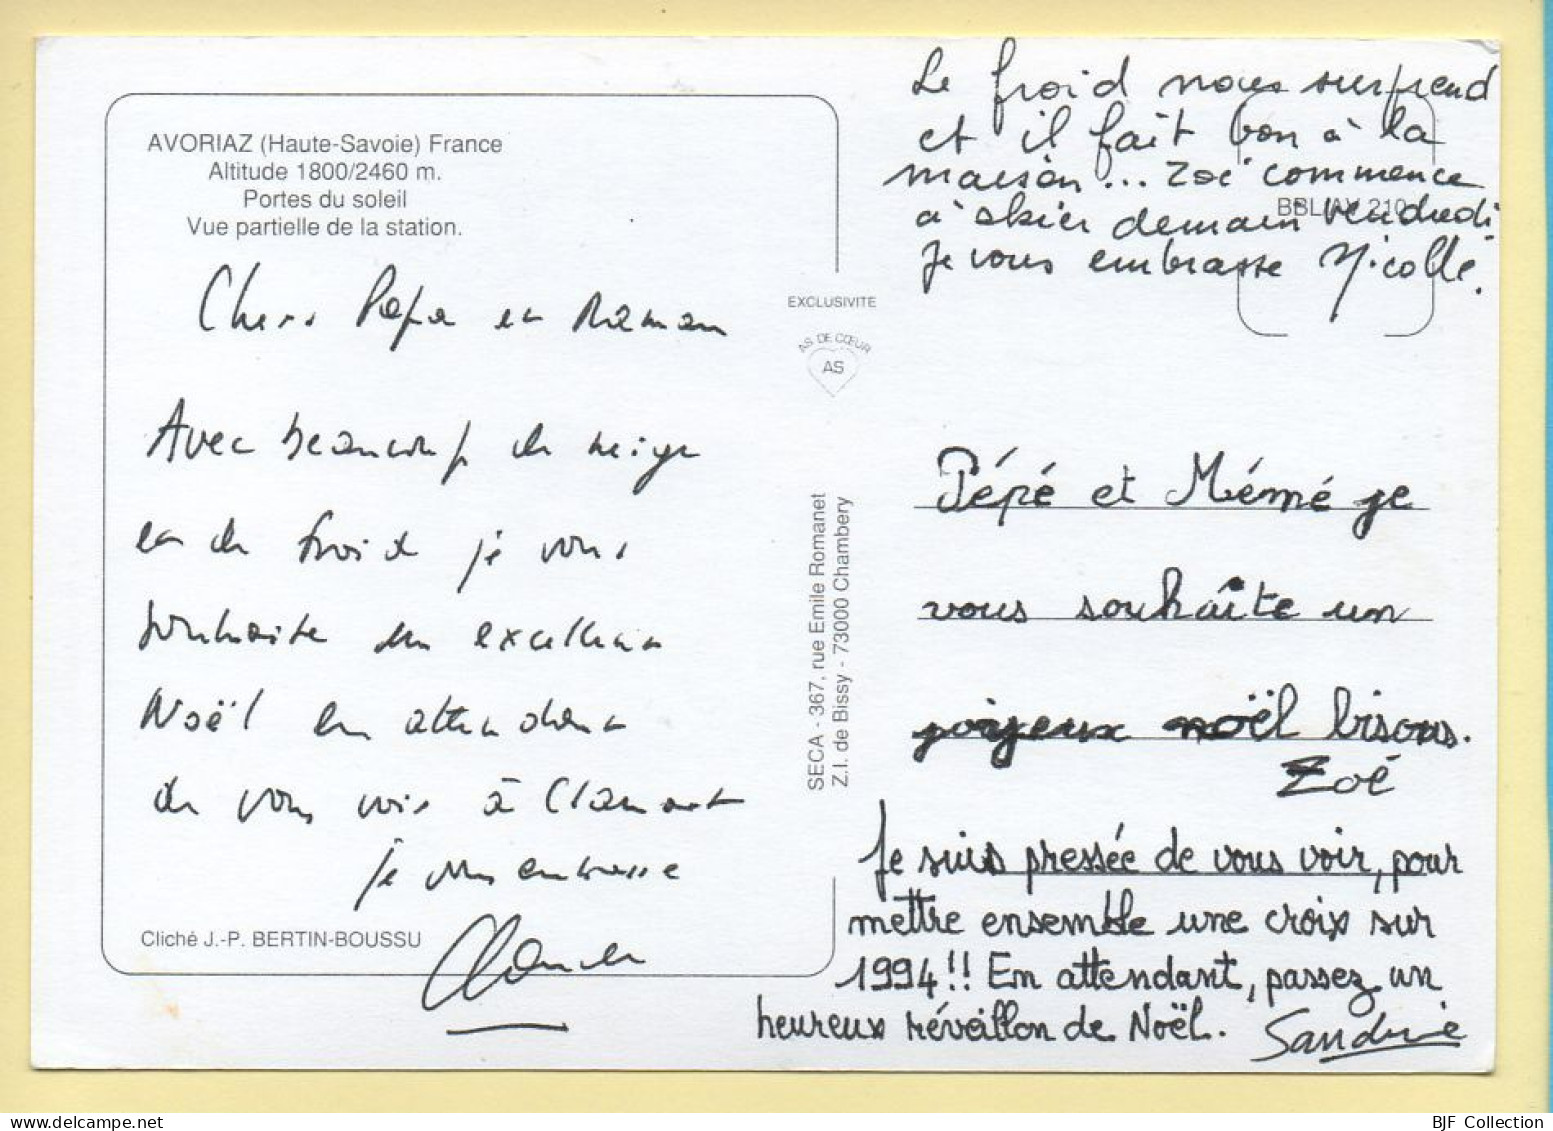 AVORIAZ (Haute-Savoie) France
Altitude 1800/2460 m.
Portes du soleil
Vue partielle de la station.
Chers Papa et Maman
Avec beaucoup de neige
et de froid je vous
souhaite un excellent
Noël en attendant
de vous voir à Clamart
je vous embrasse
Cliché J.-P. BERTIN-BOUSSU
EXCLUSIVITE
AS DE CŒUR
AS
SECA - 367, rue Emile Romanet
Z.I. de Bissy - 73000 Chambery
Le froid nous surprend
et il fait bon à la
maison... Zoé commence
à skier demain vendredi.
Je vous embrasse Nicolle.
210
Pépé et Mémé je
vous souhaîte un
joijeux noël bisous.
Zoé
Je suis pressée de vous voir, pour
mettre ensemble une croix sur
1994!! En attendant, passez un
heureux réveillon de Noël.
Sandrine
BJF Collection